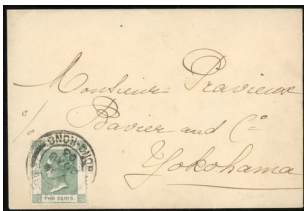 Monsieur Pravieux
c/o Bavier and Co
Yokohama
HONG-KONG
TWO CENTS